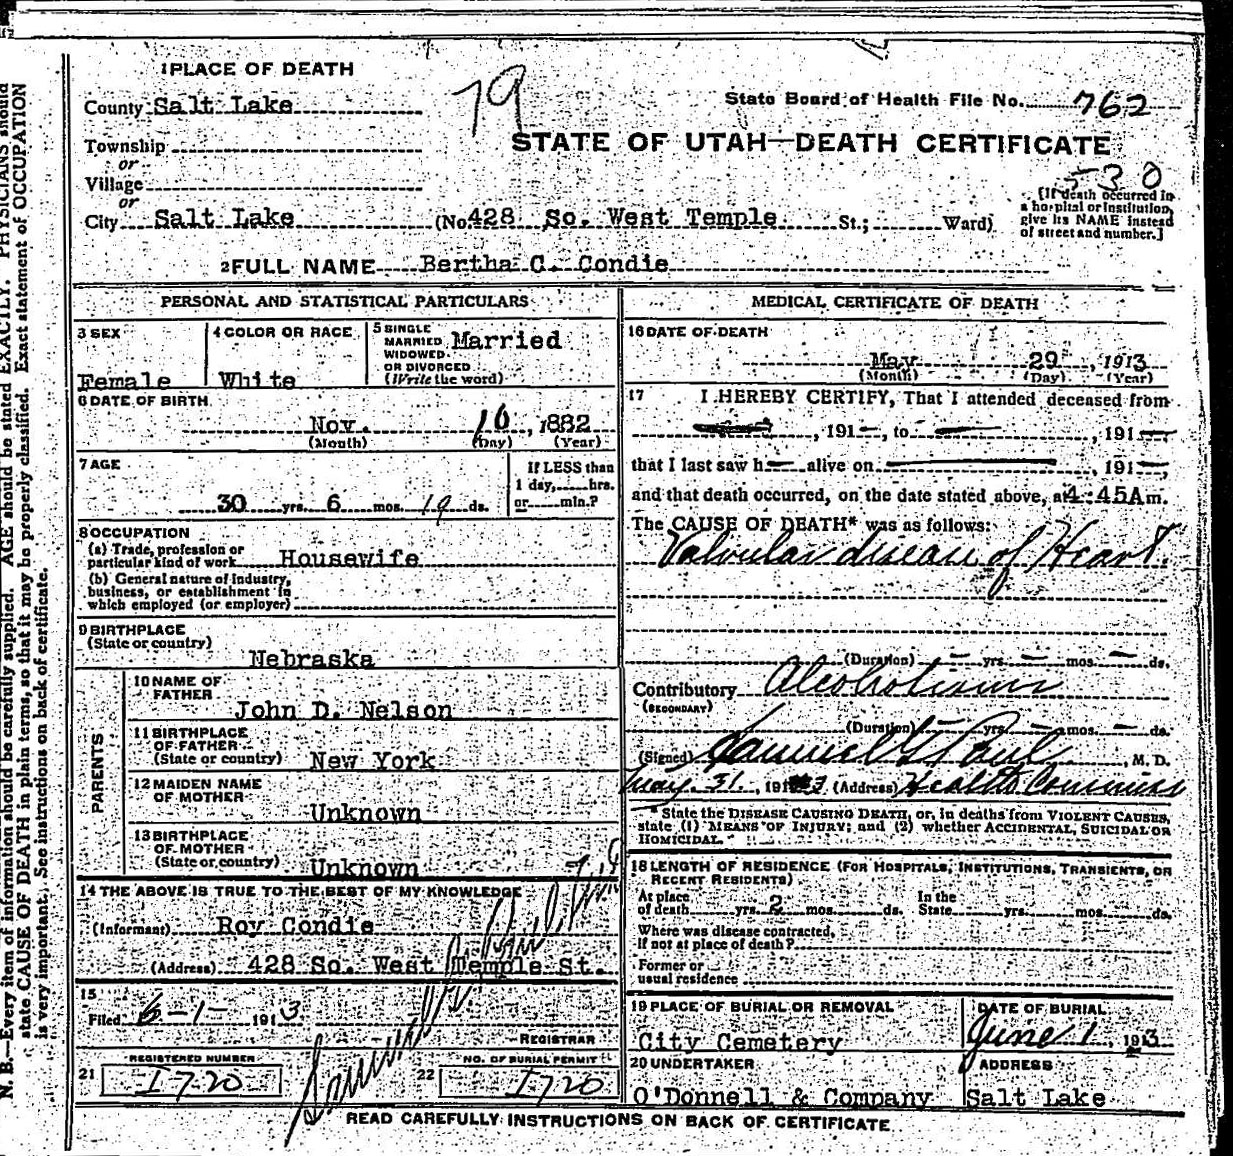 1 PLACE OF DEATH
County Salt Lake
79
State Board of Health File No. 762
Township
or
STATE OF UTAH—DEATH CERTIFICATE
Village
or
530
City Salt Lake (No. 428 So. West Temple St.; Ward)
[If death occurred in
a hospital or institution,
give its NAME instead
of street and number.]
2 FULL NAME Bertha C. Condie
PERSONAL AND STATISTICAL PARTICULARS
3 SEX
Female
4 COLOR OR RACE
White
5 SINGLE
MARRIED
WIDOWED
OR DIVORCED
(Write the word)
Married
6 DATE OF BIRTH
Nov. 10, 1882
(Month) (Day) (Year)
7 AGE
30 yrs. 6 mos. 19 ds.
If LESS than
1 day, hrs.
or min.?
8 OCCUPATION
(a) Trade, profession or
particular kind of work Housewife
(b) General nature of industry,
business, or establishment in
which employed (or employer)
9 BIRTHPLACE
(State or country)
Nebraska
PARENTS
10 NAME OF
FATHER
John D. Nelson
11 BIRTHPLACE
OF FATHER
(State or country) New York
12 MAIDEN NAME
OF MOTHER
Unknown
13 BIRTHPLACE
OF MOTHER
(State or country) Unknown
14 THE ABOVE IS TRUE TO THE BEST OF MY KNOWLEDGE
(Informant) Roy Condie
(Address) 428 So. West Temple St.
15
Filed 6-1- 1913
REGISTRAR
REGISTERED NUMBER
21 1720
NO. OF BURIAL PERMIT
22 1720
MEDICAL CERTIFICATE OF DEATH
16 DATE OF DEATH
May 29, 1913
(Month) (Day) (Year)
17 I HEREBY CERTIFY, That I attended deceased from
, 191—, to , 191—,
that I last saw h— alive on , 191—,
and that death occurred, on the date stated above, at 4:45A m.
The CAUSE OF DEATH* was as follows:
Valvular disease of Heart
(Duration) — yrs. — mos. — ds.
Contributory Alcoholism
(SECONDARY)
(Duration) — yrs. — mos. — ds.
(Signed) Samuel G Paul, M. D.
May. 31., 1913 (Address) Health Commiss
* State the DISEASE CAUSING DEATH, or, in deaths from VIOLENT CAUSES,
state (1) MEANS OF INJURY; and (2) whether ACCIDENTAL, SUICIDAL OR
HOMICIDAL.
18 LENGTH OF RESIDENCE (FOR HOSPITALS, INSTITUTIONS, TRANSIENTS, OR
RECENT RESIDENTS)
At place
of death yrs. 2 mos. ds.
In the
State yrs. mos. ds.
Where was disease contracted,
if not at place of death?
Former or
usual residence
19 PLACE OF BURIAL OR REMOVAL
City Cemetery
DATE OF BURIAL
June 1, 1913
20 UNDERTAKER
O'Donnell & Company
ADDRESS
Salt Lake
READ CAREFULLY INSTRUCTIONS ON BACK OF CERTIFICATE
N. B.—Every item of information should be carefully supplied. AGE should be stated EXACTLY. PHYSICIANS should
state CAUSE OF DEATH in plain terms, so that it may be properly classified. Exact statement of OCCUPATION
is very important. See instructions on back of certificate.